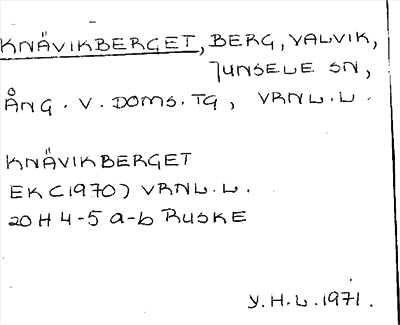 KNÄVIKBERGET, BERG, VALVIK,
JUNSELE SN,
ÅNG. V. DOMS. TG, VRNL.L.
KNÄVIKBERGET
EK (1970) VRNL.L.
20H 4-5 a-b RUSKE
Y.H.L.1971.